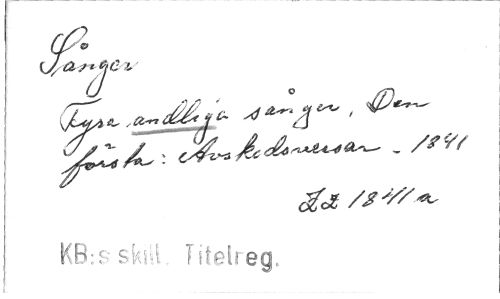 Sånger
Fyra andliga sånger, Den
första: Avskedsversar - 1841
ZZ 1841 a
KB:s skill. Titelreg.